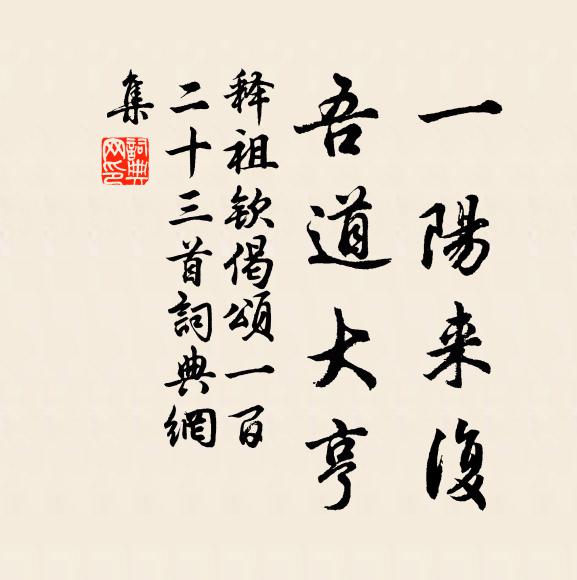 一陽来復
吾道大亨
释祖欽偈頌一百
二十三首詞典網
集
詞典
网印